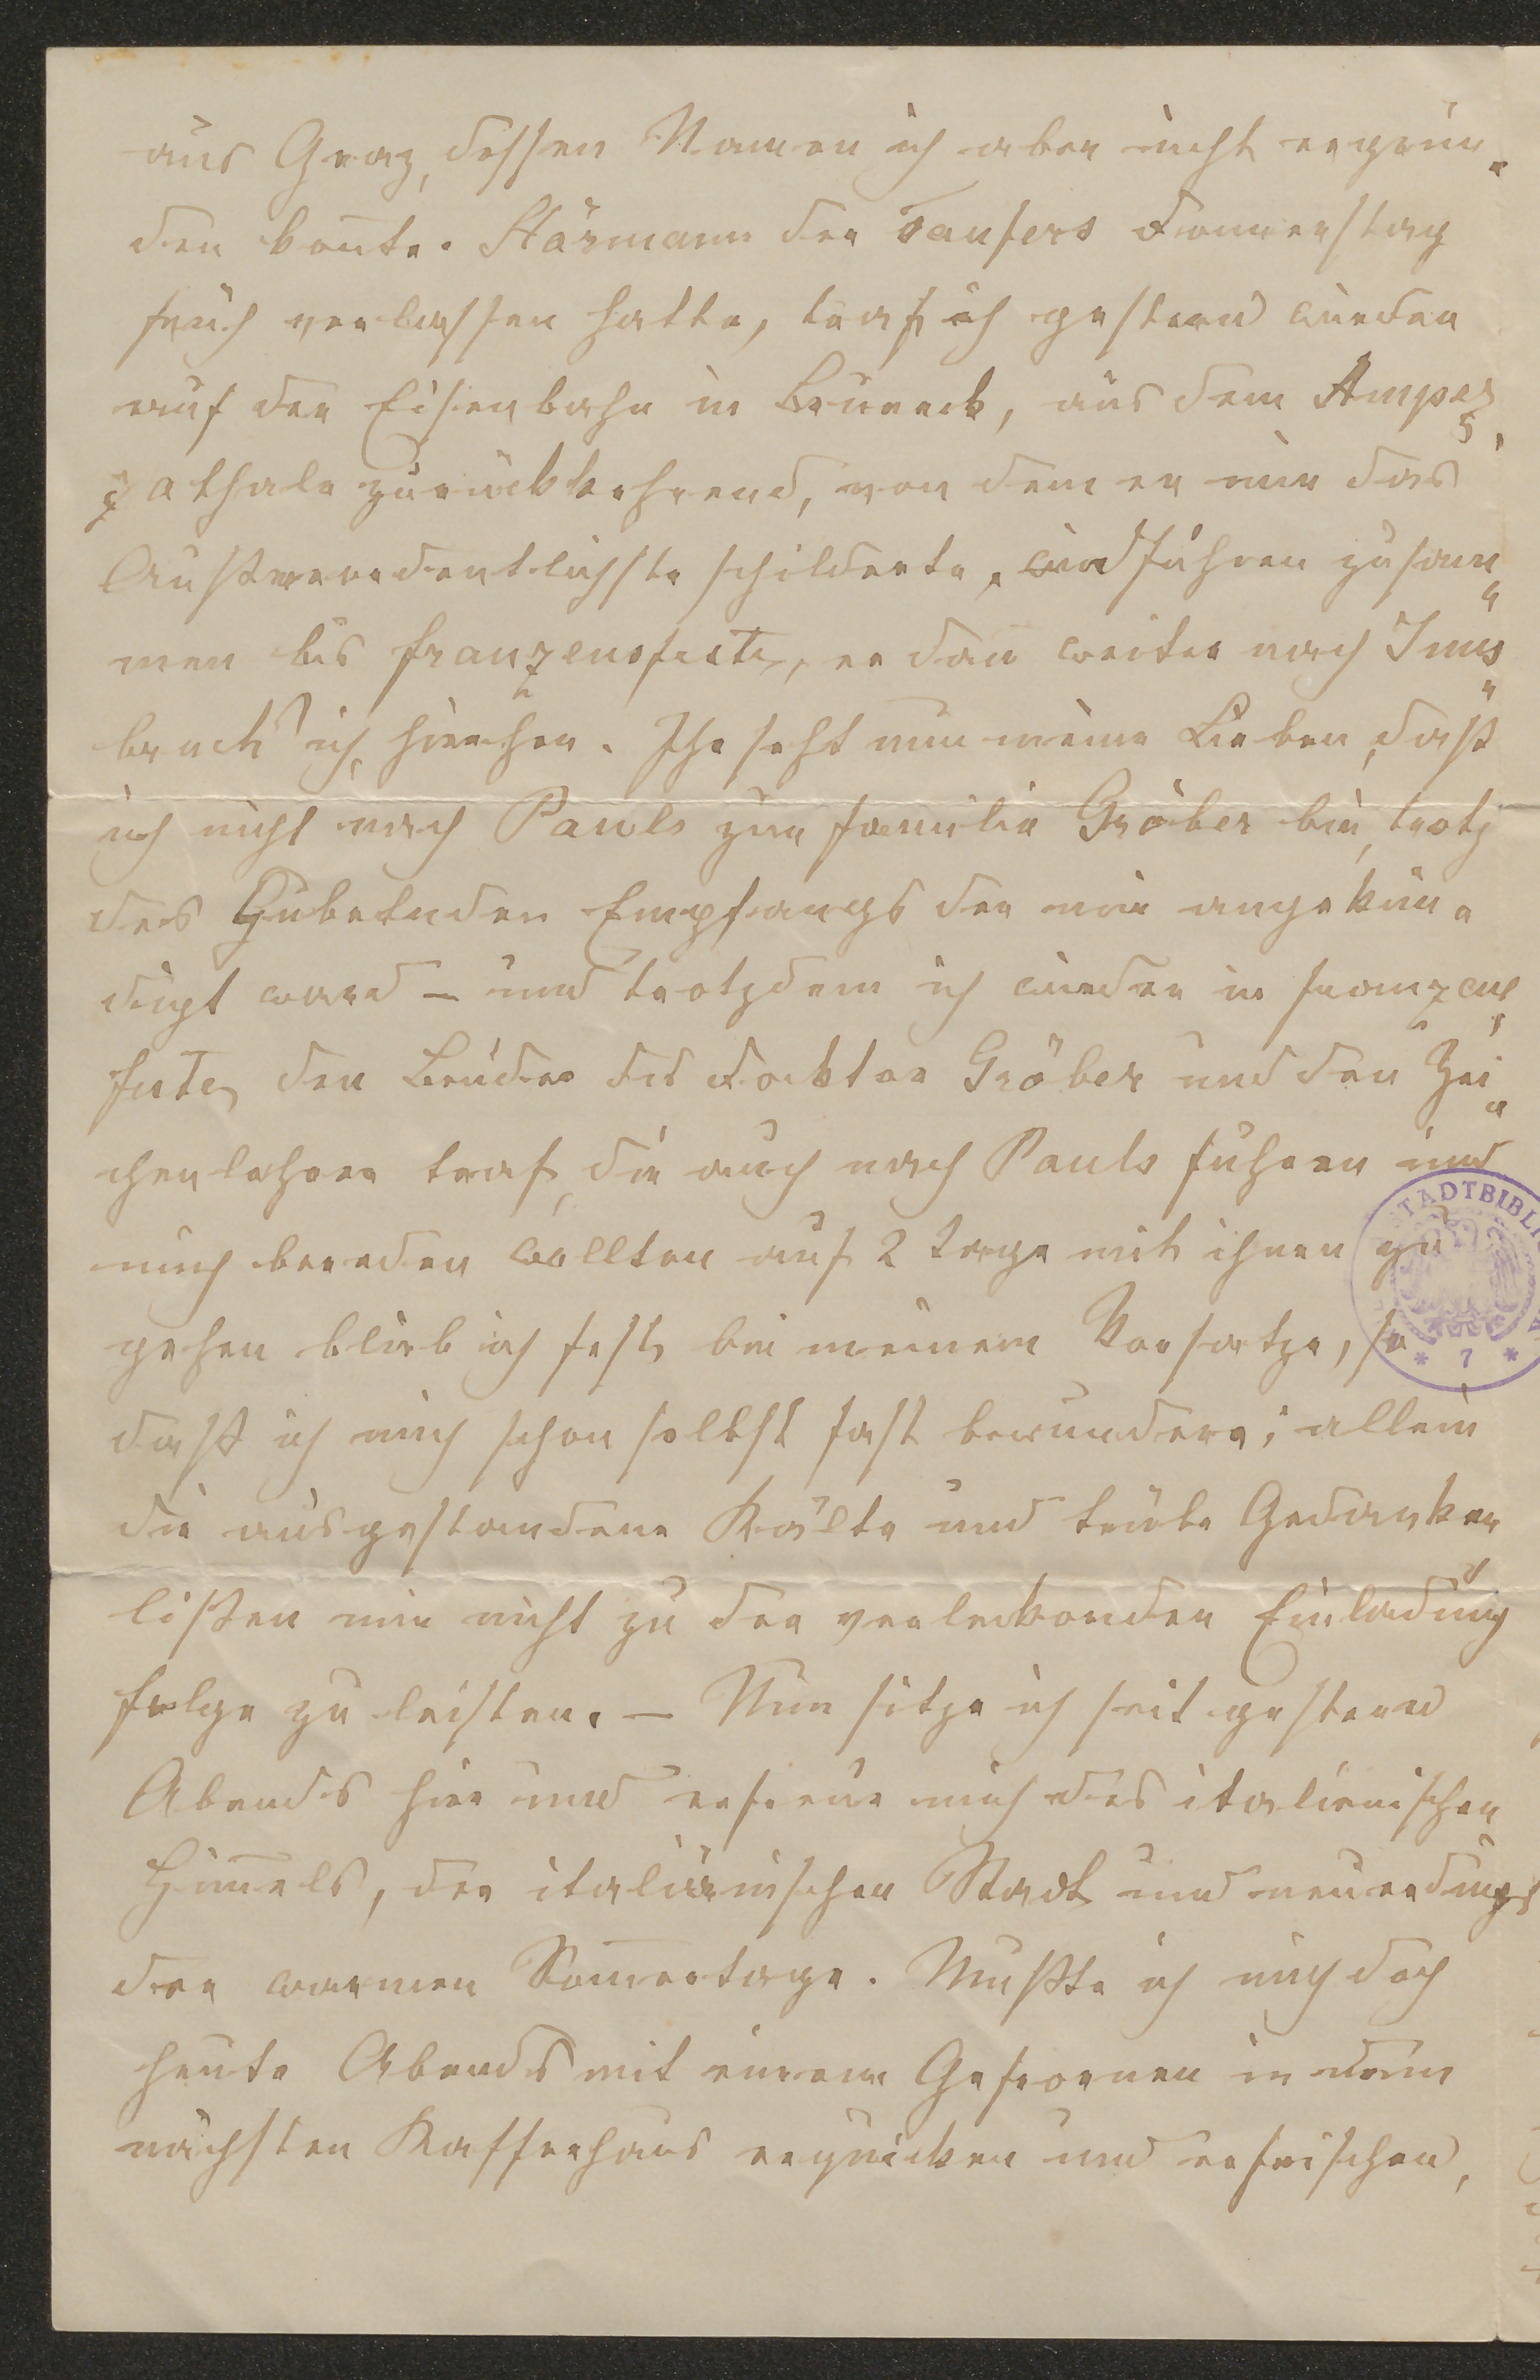 aus Graz, dessen Namen ich aber nicht ergrün-
den kon̅te. Störmann der Taufers Donnerstag
früh verlassen hatte, traf ich gestern wieder
auf der Eisenbahn in Bruneck, aus dem Ampez-
zathale zurückkehrend, von dem er mir das
Außerordentlichste schilderte, wir fuhren zusam-
men bis Franzensfeste, er dan̅ weiter nach Inns-
bruck ich, hierher. Ihr seht nun meine Lieben, daß
ich nicht nach Pauls zur Familie Gröber bin, trotz
des jubelnden Empfangs der mir angekün-
digt ward – und trotzdem ich wieder in Franzens-
feste, den Bruder des Doktor Gröber und den Zei-
chenlehrer traf, die auch nach Pauls fuhren und
mich bereden wollten auf 2 Tage mit ihnen zu
gehen blieb ich fest, bei meinem Vorsatze, so
daß ich mich schon selbst fast bewundere; allein
die ausgestandene Kälte und trübe Gedanken
lißen mir nicht zu der verlockenden Einladung
folge zu leisten. – Nun sitze ich seit gestern
Abends hier und erfreue mich des italienischen
Him̅els, der italiänischen Stadt und neuerdings
der warmen Som̅ertage. Mußte ich mich doch
heute Abends mit einem Gefrornen in dem
nächsten Kaffeehaus erquicken und erfrischen,
STADTBIBLI
* 7 *